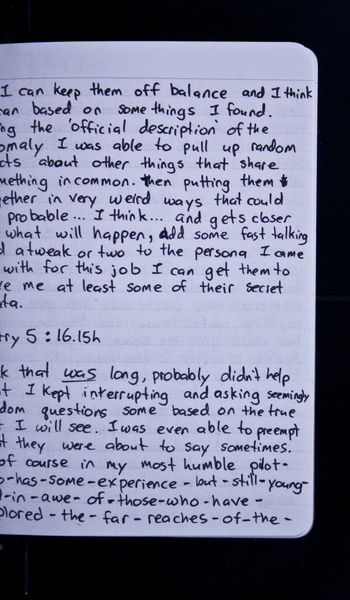 I can keep them off balance and I think
can based on some things I found.
ng the 'official description' of the
omaly I was able to pull up random
cts about other things that share
mething in common. Then putting them
ether in very weird ways that could
probable... I think... and gets closer
what will happen, add some fast talking
d a tweak or two to the persona I came
with for this job I can get them to
e me at least some of their secret
ta.
try 5 : 16.15h
k that was long, probably didn't help
t I kept interrupting and asking seemingly
dom questions some based on the true
t I will see. I was even able to preempt
t they were about to say sometimes.
of course in my most humble pilot-
o-has-some-experience-but-still-young-
d-in-awe-of-those-who-have-
plored-the-far-reaches-of-the-